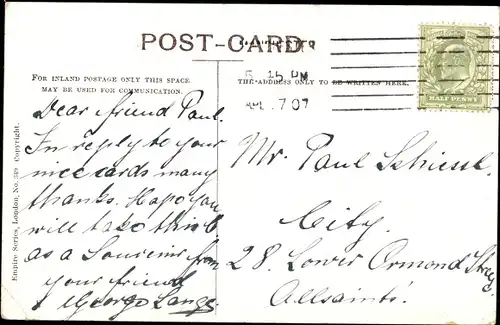 POST-CARD
FOR INLAND POSTAGE ONLY THIS SPACE
MAY BE USED FOR COMMUNICATION.
THE ADDRESS ONLY TO BE WRITTEN HERE.
5 15 PM
7 07
HALF PENNY
Empire Series, London, No. 349 Copyright.
Dear friend Paul.
In reply to your
nice cards many
thanks. Hope You
will take this
as a Souvenir from
your friend
George
Mr. Paul
City.
28. Lower Ormond Street
Allsaints.